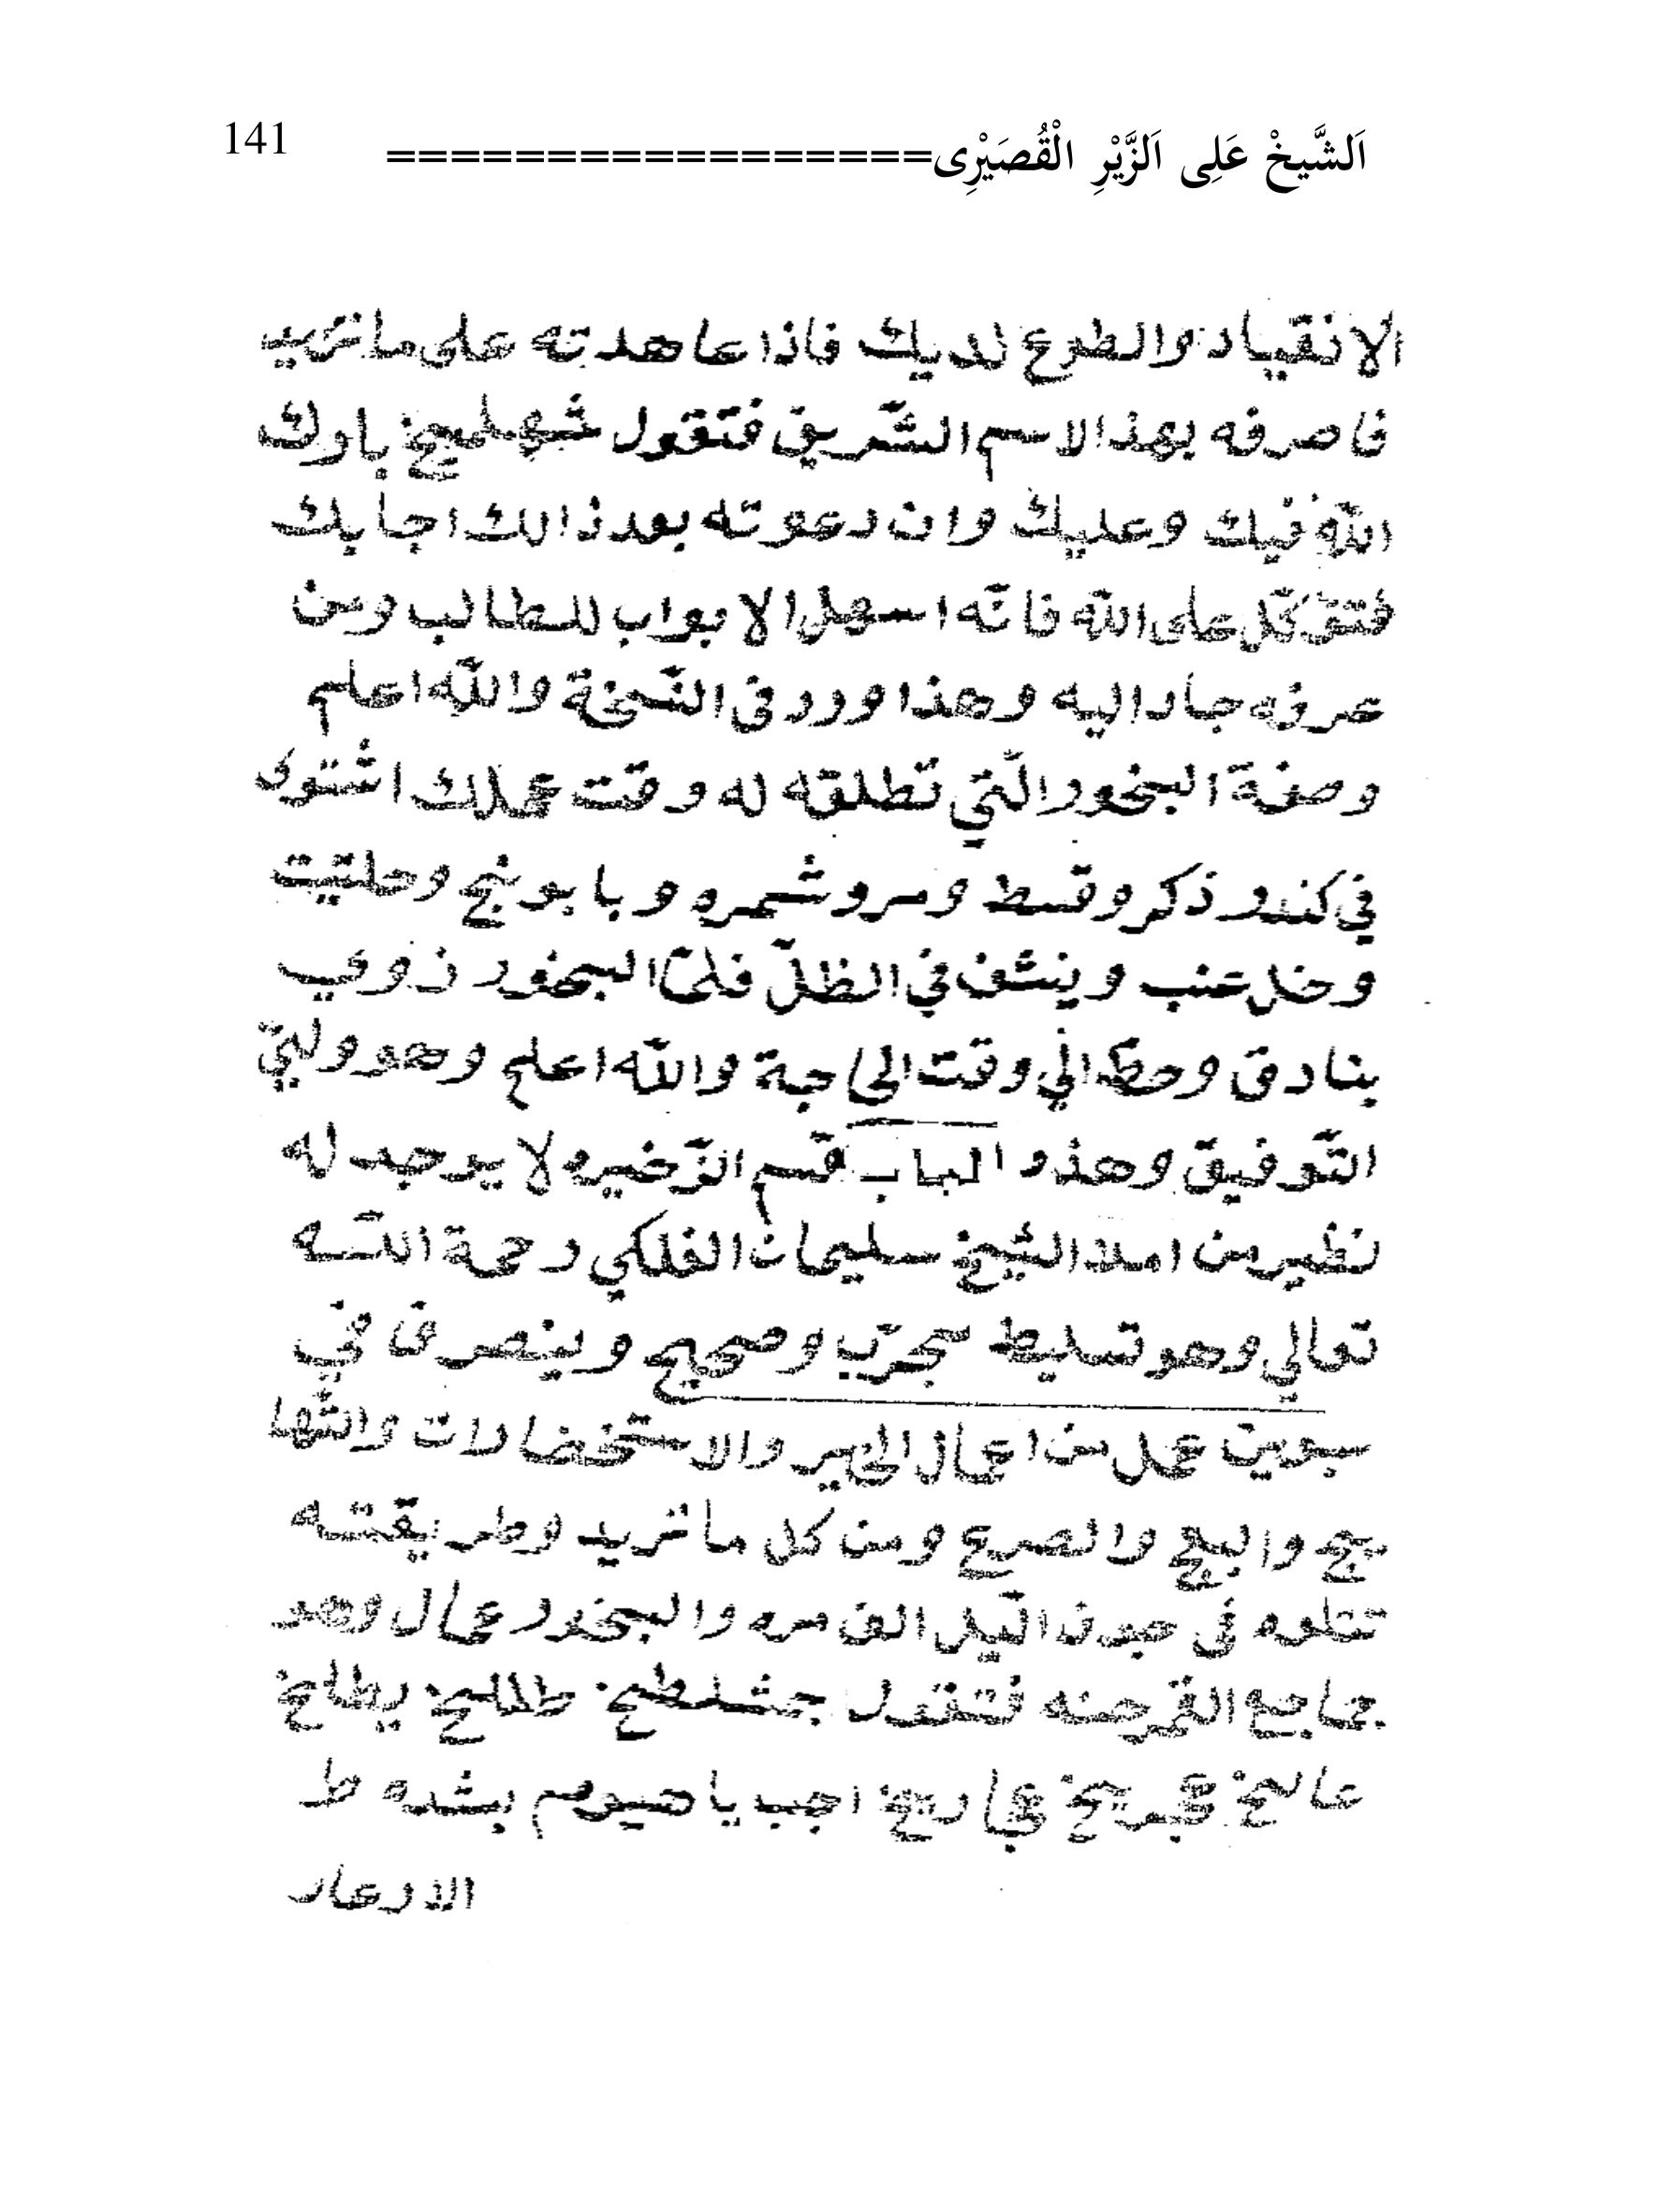 اَلشَّيخْ عَلِى اَلزَّيْرِ الْقُصَيْرِى================= 141
الانقياد والطوع لديك فاذا عاهدته على ما تريد
فاصرفه بهذا الاسم الشّريق فتقول شهلميخ باوك
اللّه فيك وعليك وان دعوته بعد ذالك اجابك
فتوّكّل على اللّه فانّه اسهل الابواب للطالب ومن
عرفه جاد اليه وهذا ورد فى النّسخة واللّه اعلم
وصفة البخور الّتي تطلقه له وقت عملك اشتوى
في كندر ذكر وقسط ومرو شمره وبابونج وحلتيت
وخل عنب وينشف في الظلّ فلمّا البخور
بنادق وحطّه الي وقت الحاجة واللّه اعلم وهو وليّ
التّوفيق وهذه الباب قسم الزّخيره لا يوجد له
نظير من املاد الشّيخ سليمان الفلكي رحمة اللّه
تعالي وهو تسليط مجرّب وصحيح وينصرف في
سبعين عمل من اعمال الخير والاستخضالات والتّها
يج والبيج والصرع ومن كل ما تريد وطريقته
تتلوه في جوف اللّيل الف مره والبخور عمال وهو
جماجع القمرجنه فتقول جشلطخ طللخ يطلخ
عالخ اجب يا هيوم بشده ط
الارعاد